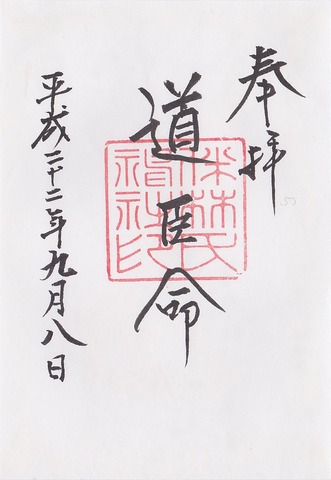 奉拝
道臣命
平成二十二年九月八日